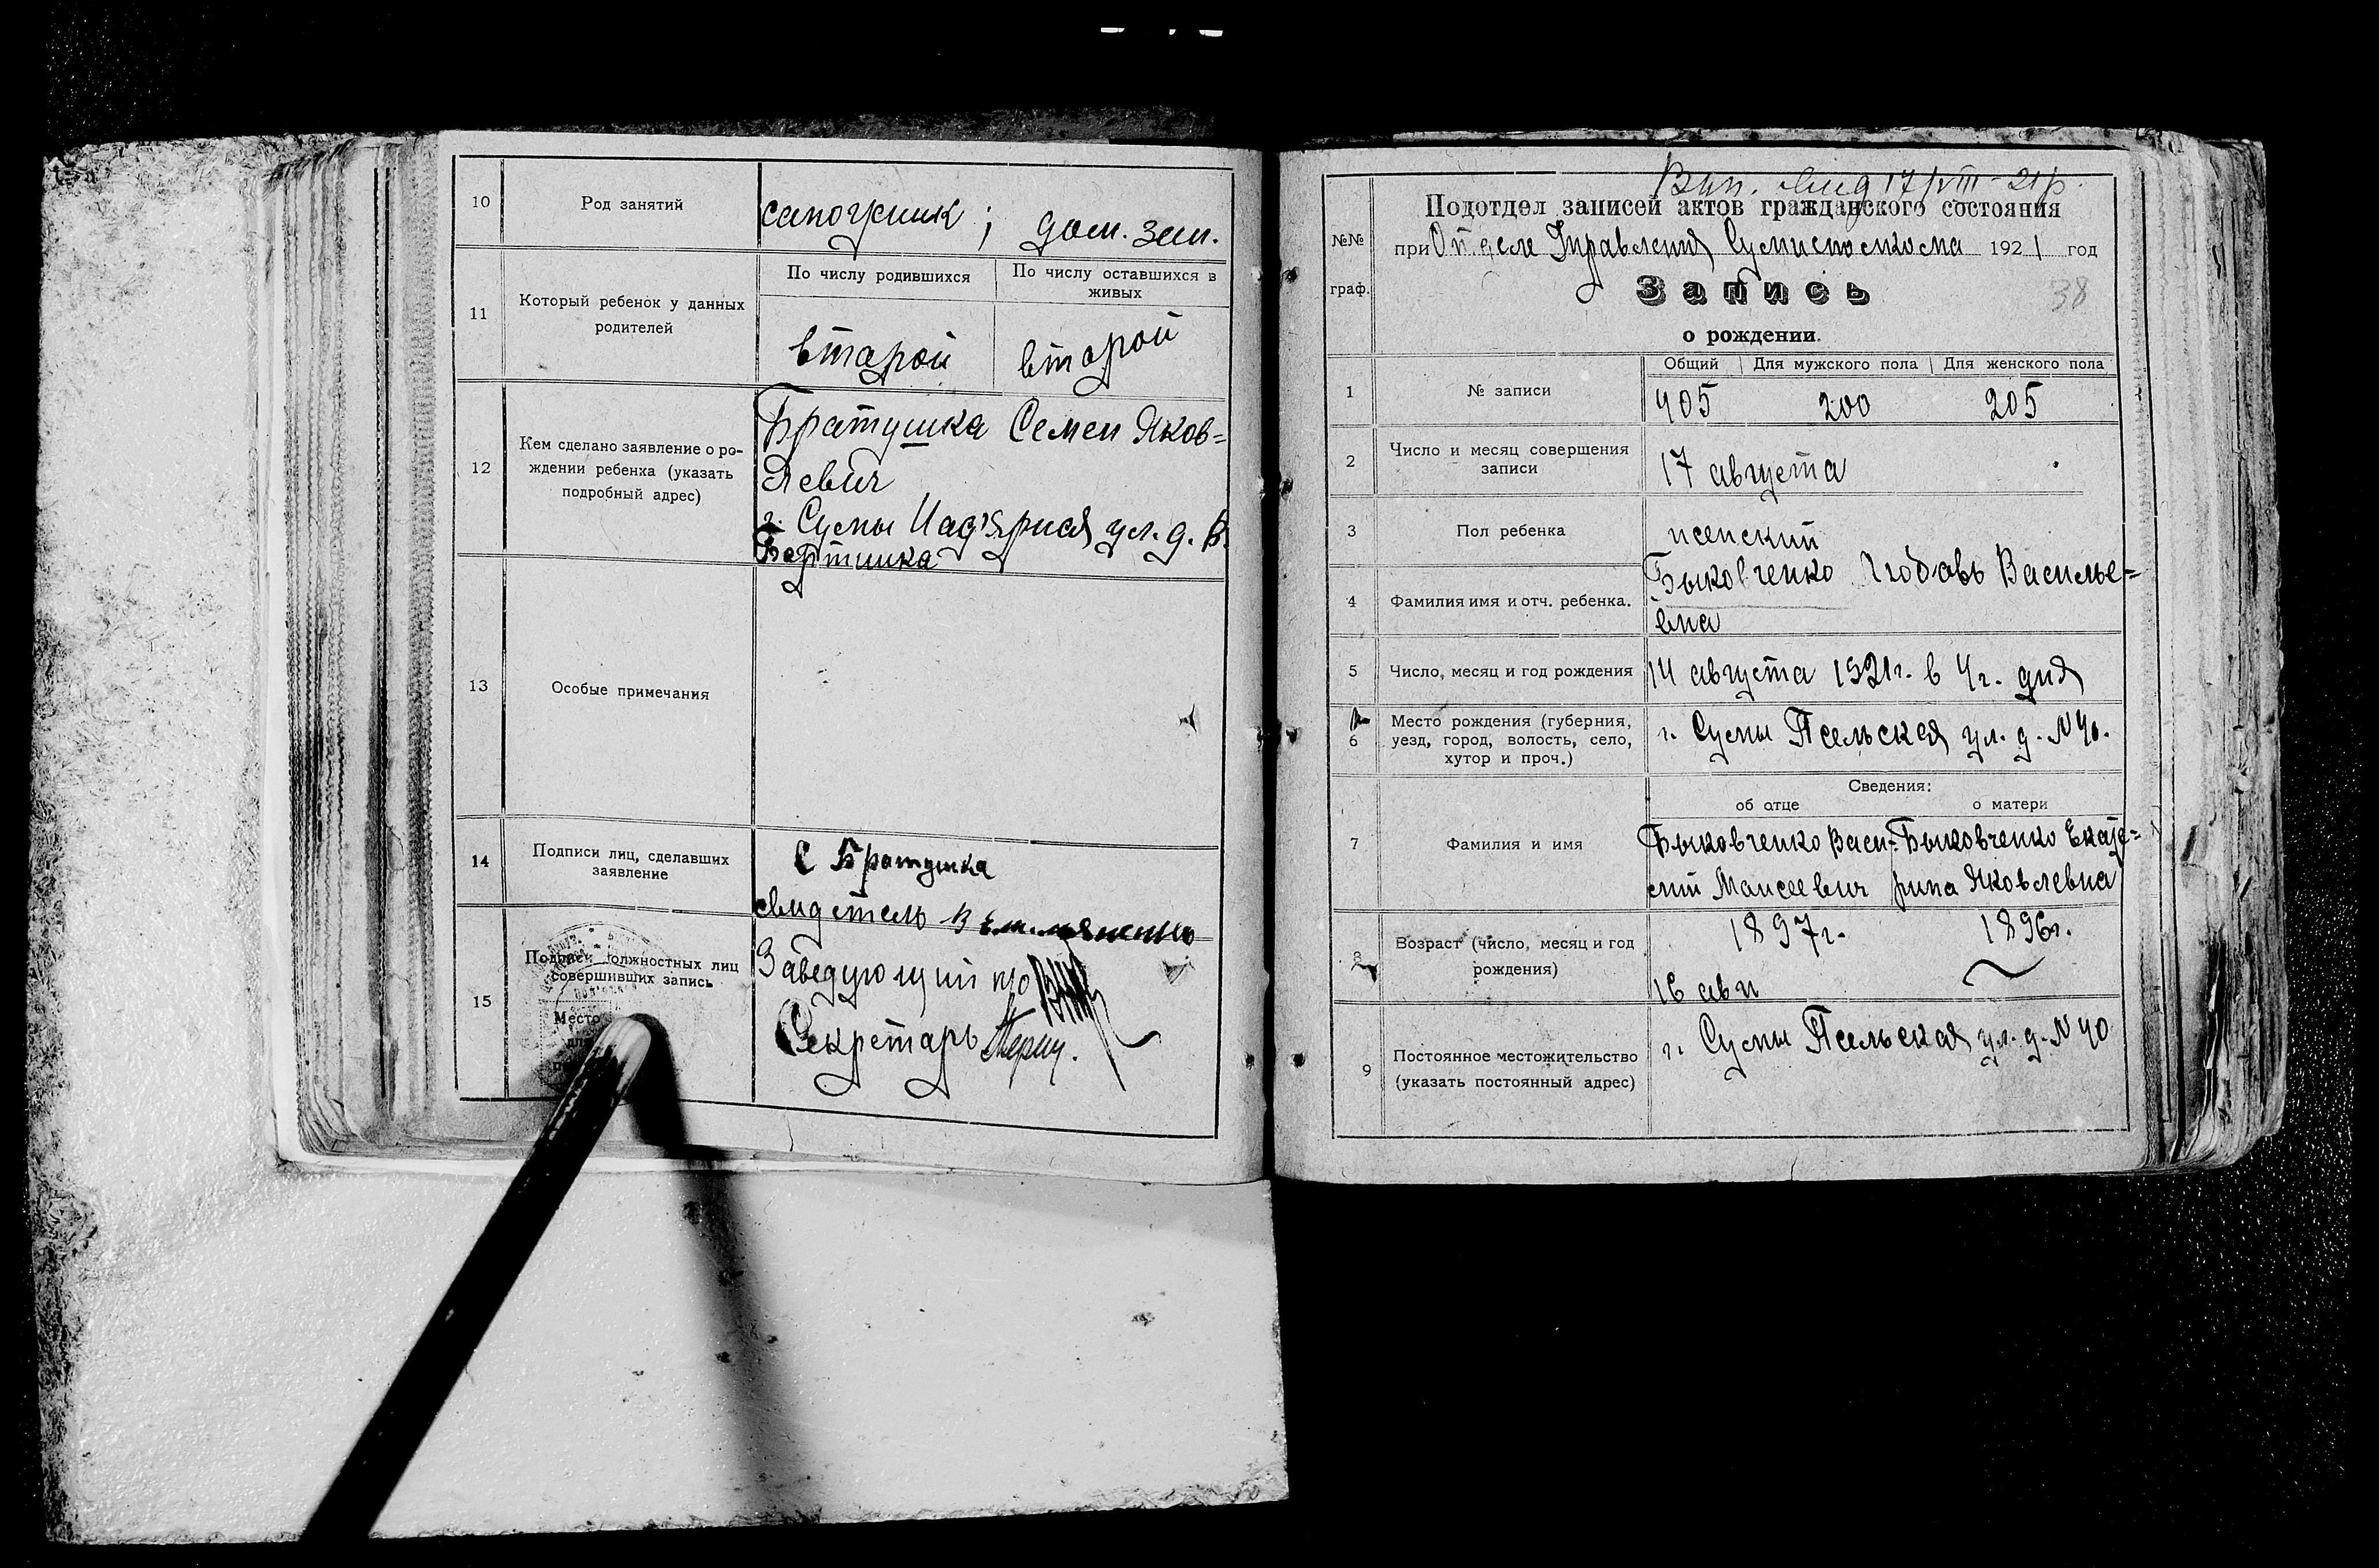 10
Род занятий
сапожник ; дом. зан.
11
Который ребенок у данных
родителей
По числу родившихся
По числу оставшихся в
живых
второй
второй
12
Кем сделано заявление о ро-
ждении ребенка (указать
подробный адрес)
Братушка Семен Яков=
левич
г. Сумы Над'ярная ул. д. В.
13
Особые примечания
14
Подписи лиц, сделавших
заявление
С Братушка
свидетель В
15
Подписи должностных лиц
совершивших запись
Место
для
Заведующий п/о
Секретарь
17/VIII-21р.
№№
граф.
Подотдел записей актов гражданского состояния
при Отделе Управления Сумисполкома 1921 год
Запись
38
о рождении.
1
№ записи
Общий
Для мужского пола
Для женского пола
405
200
205
2
Число и месяц совершения
записи
17 августа
3
Пол ребенка
женский
4
Фамилия имя и отч. ребенка.
Быковченко Любовь Василье=
вна
5
Число, месяц и год рождения
14 августа 1921г. в 4ч. дня
6
Место рождения (губерния,
уезд, город, волость, село,
хутор и проч.)
г. Сумы Псельская ул. д. N 40.
Сведения:
об отце
о матери
7
Фамилия и имя
Быковченко Васи-
лий Моисеевич
Быковченко Екате=
рина Яковлевна
8
Возраст (число, месяц и год
рождения)
1897г.
16 авг
1896г.
9
Постоянное местожительство
(указать постоянный адрес)
г. Сумы Псельская ул. д. N 40